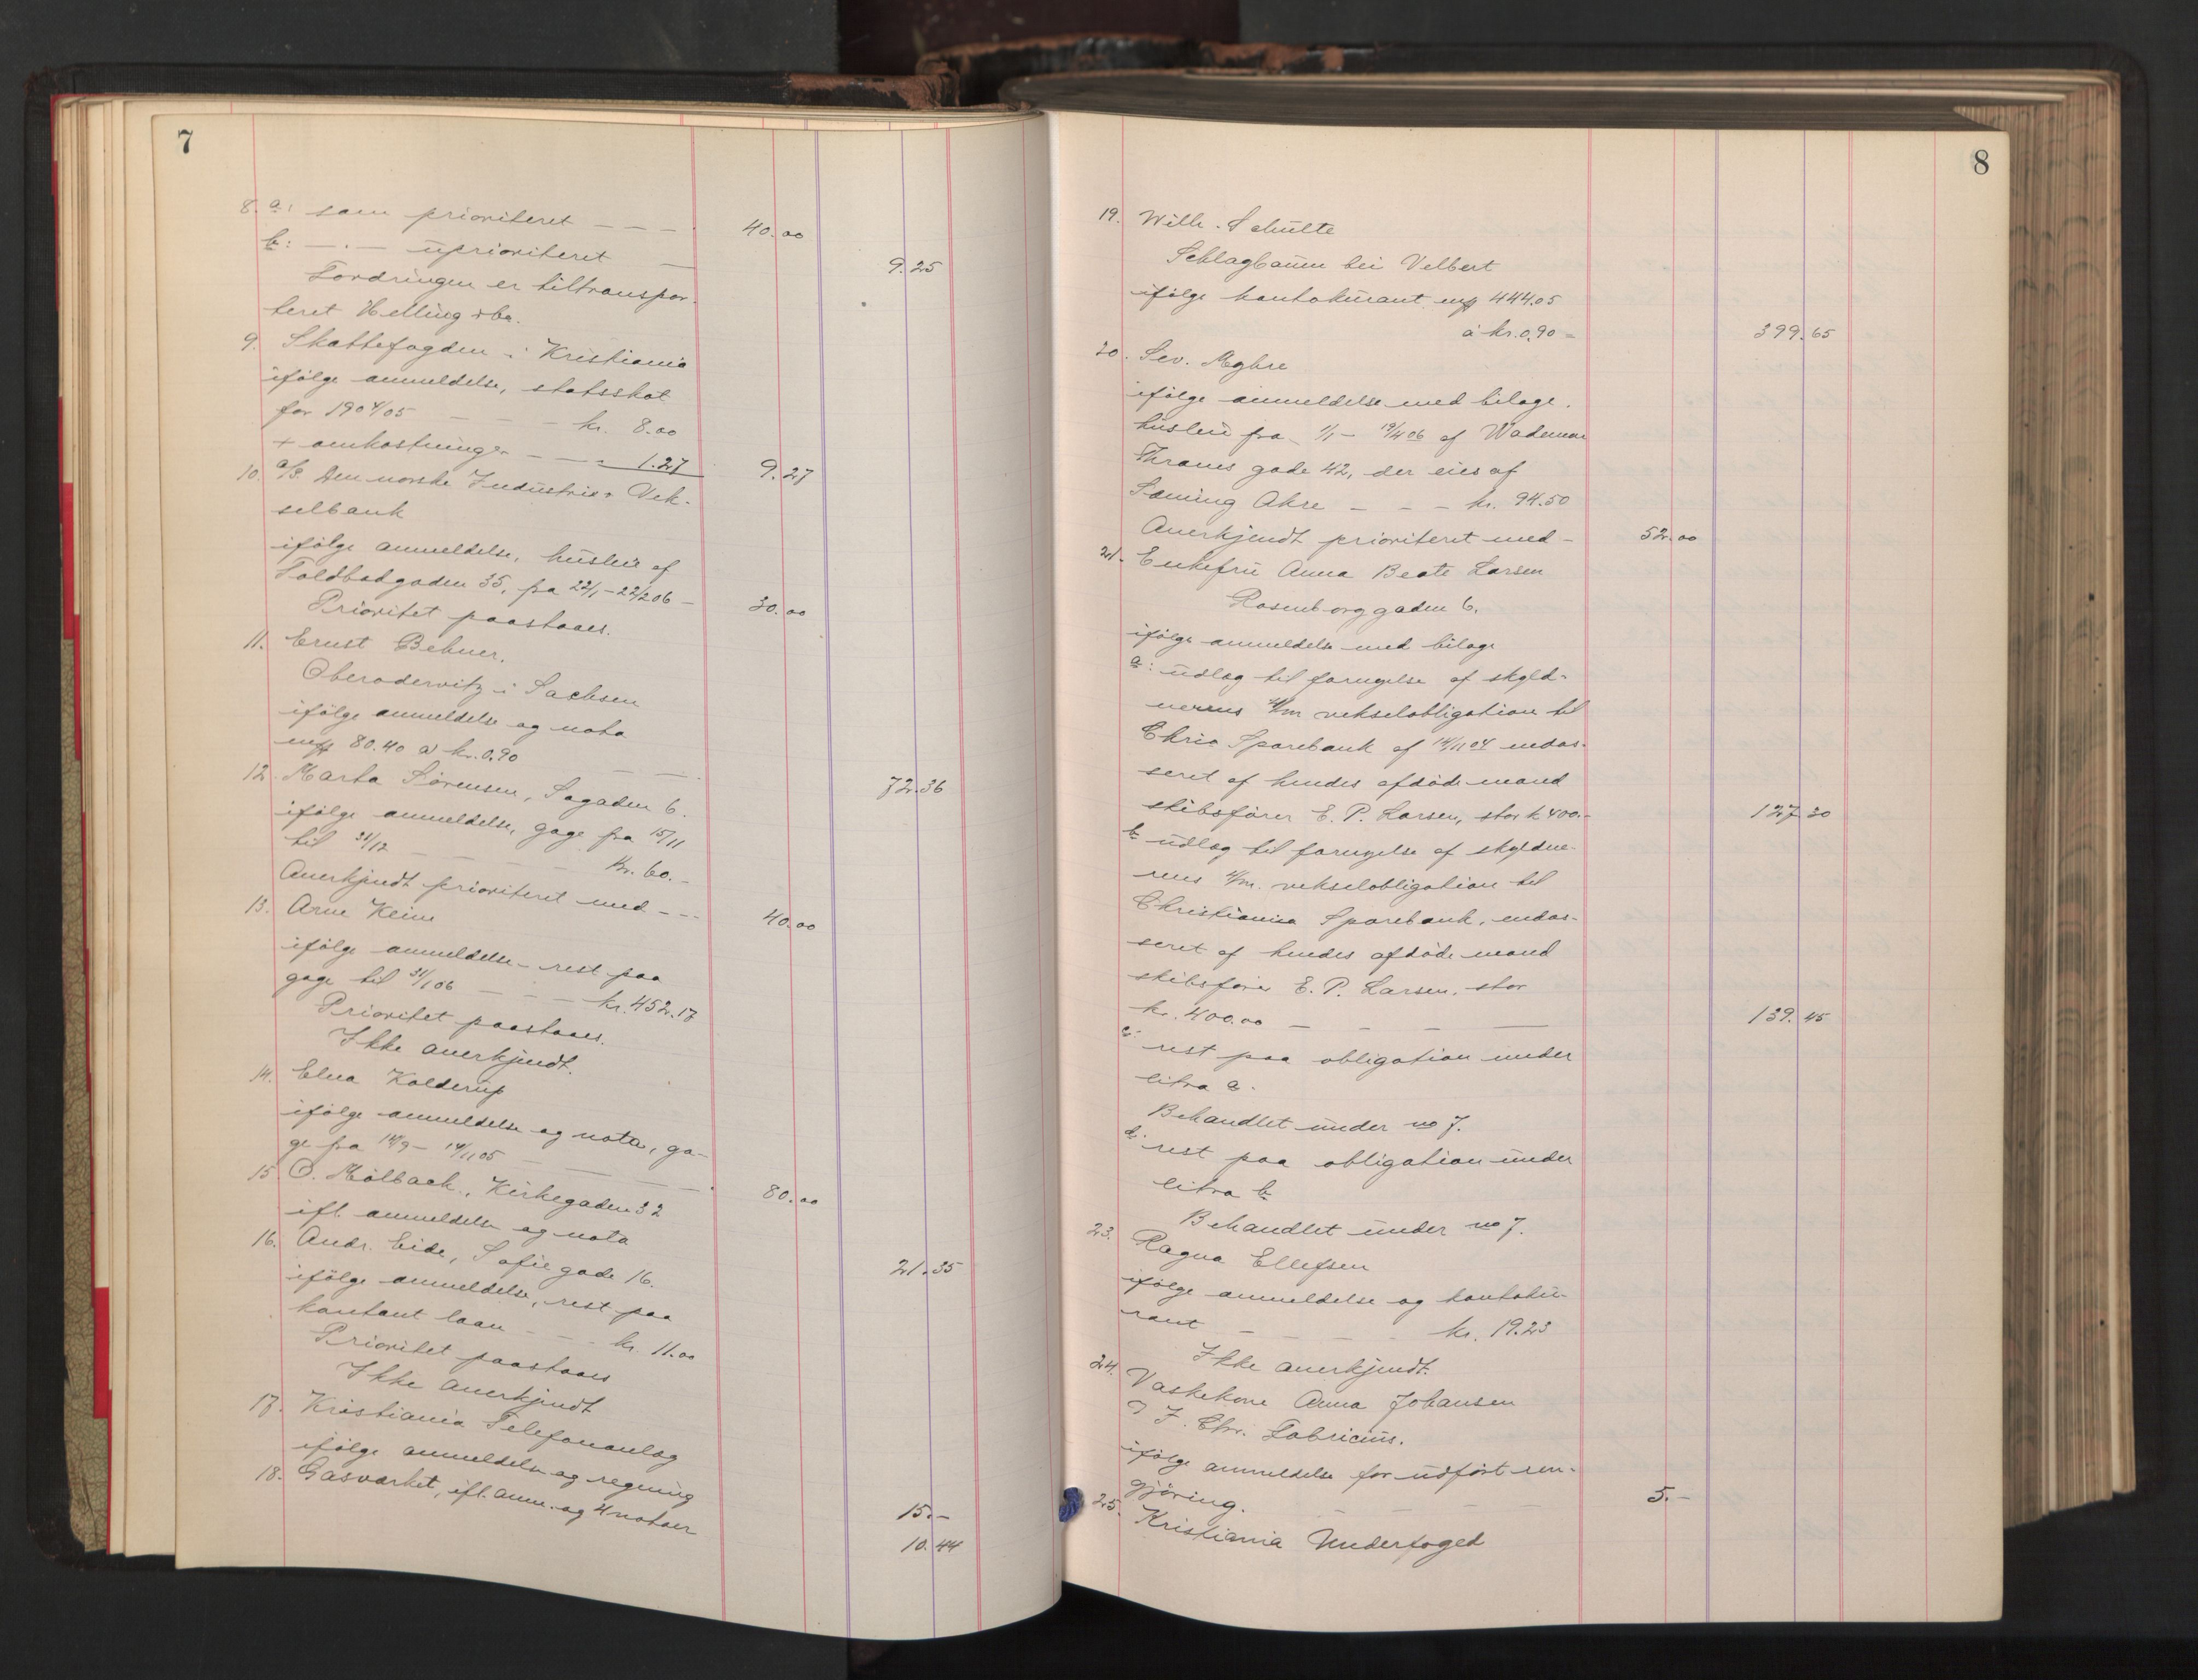 7
8. a: som prioriteret — — — 40.00
b: — . — uprioriteret — 9.25
Fordringen er tiltranspor-
teret Helling &co.
9. Skattefogden i Kristiania
ifølge anmeldelse, statsskat
for 1904/05 — — kr. 8.00
+ omkostninger — — 1.27 9.27
10. a/s Den norske Industri & Vek-
selbank
ifølge anmeldelse, husleie af
Toldbodgaden 35, fra 22/1 - 22/2 06 — 30.00
Prioritet paastaaes.
11. Ernst Behner.
Oberoderwitz i Sachsen
ifølge anmeldelse og nota
80.40 a kr. 0.90 — — 72.36
12. Marta Sørensen, Sagaden 6.
ifølge anmeldelse, gage fra 15/11
til 31/12 — — — Kr. 60.-
Anerkjendt prioriteret med - - - 40.00
13. Arne Keim
ifølge anmeldelse - rest paa
gage til 31/1 06 — — — kr. 452.17
Prioritet paastaaes.
Ikke anerkjendt.
14. Elna Kolderup
ifølge anmeldelse og nota, ga-
ge fra 14/9 - 14/11 05 — — — 80.00
15. O. Mølbach, Kirkegaden 32
ifl. anmeldelse og nota 21.35
16. Andr. Eide, Sofie gade 16.
ifølge anmeldelse, rest paa
kontant laan — — kr. 11.00
Prioritet paastaaes
Ikke anerkjendt
17. Kristiania Telefonanlæg
ifølge anmeldelse og regning 15.-
18. Gasværket, ifl. anm. og 4 notaer 10.44
8
19. Wilh. Schulte
Schlagbaum bei Velbert
ifølge kontokurant 444.05
à kr. 0.90 = 399.65
20. Sev. Myhre
ifølge anmeldelse med bilage.
husleie fra 1/1 - 19/4 06 af Waldemar
Thranes gade 42, der eies af
Sæming Akre — — — kr. 94.50
Anerkjendt prioriteret med - 52.00
21. Enkefru Anna Beate Larsen
Rosenborggaden 6.
ifølge anmeldelse med bilage
a: udlæg til fornyelse af skyld-
nerens 4/m vekselobligation til
Chria Sparebank af 14/11 04 endos-
seret af hendes afdøde mand
skibsfører E. P. Larsen, stor k 400.- 127.30
b: udlæg til fornyelse af skyldne-
rens 4/m. vekselobligation til
Christiania Sparebank, endos-
seret af hendes afdøde mand
skibsfører E. P. Larsen, stor
kr. 400.00 — — — — 139.45
c: rest paa obligation under
litra a.
Behandlet under no 7.
d: rest paa obligation under
litra b
Behandlet under no 7.
23. Ragna Ellefsen
ifølge anmeldelse og kontoku-
rant — — — — kr. 19.23
Ikke anerkjendt.
24. Vaskekone Anna Johansen
J. Chr. Fabricius.
ifølge anmeldelse for udført ren-
gjøring. — — — — 5.-
25. Kristiania Underfoged